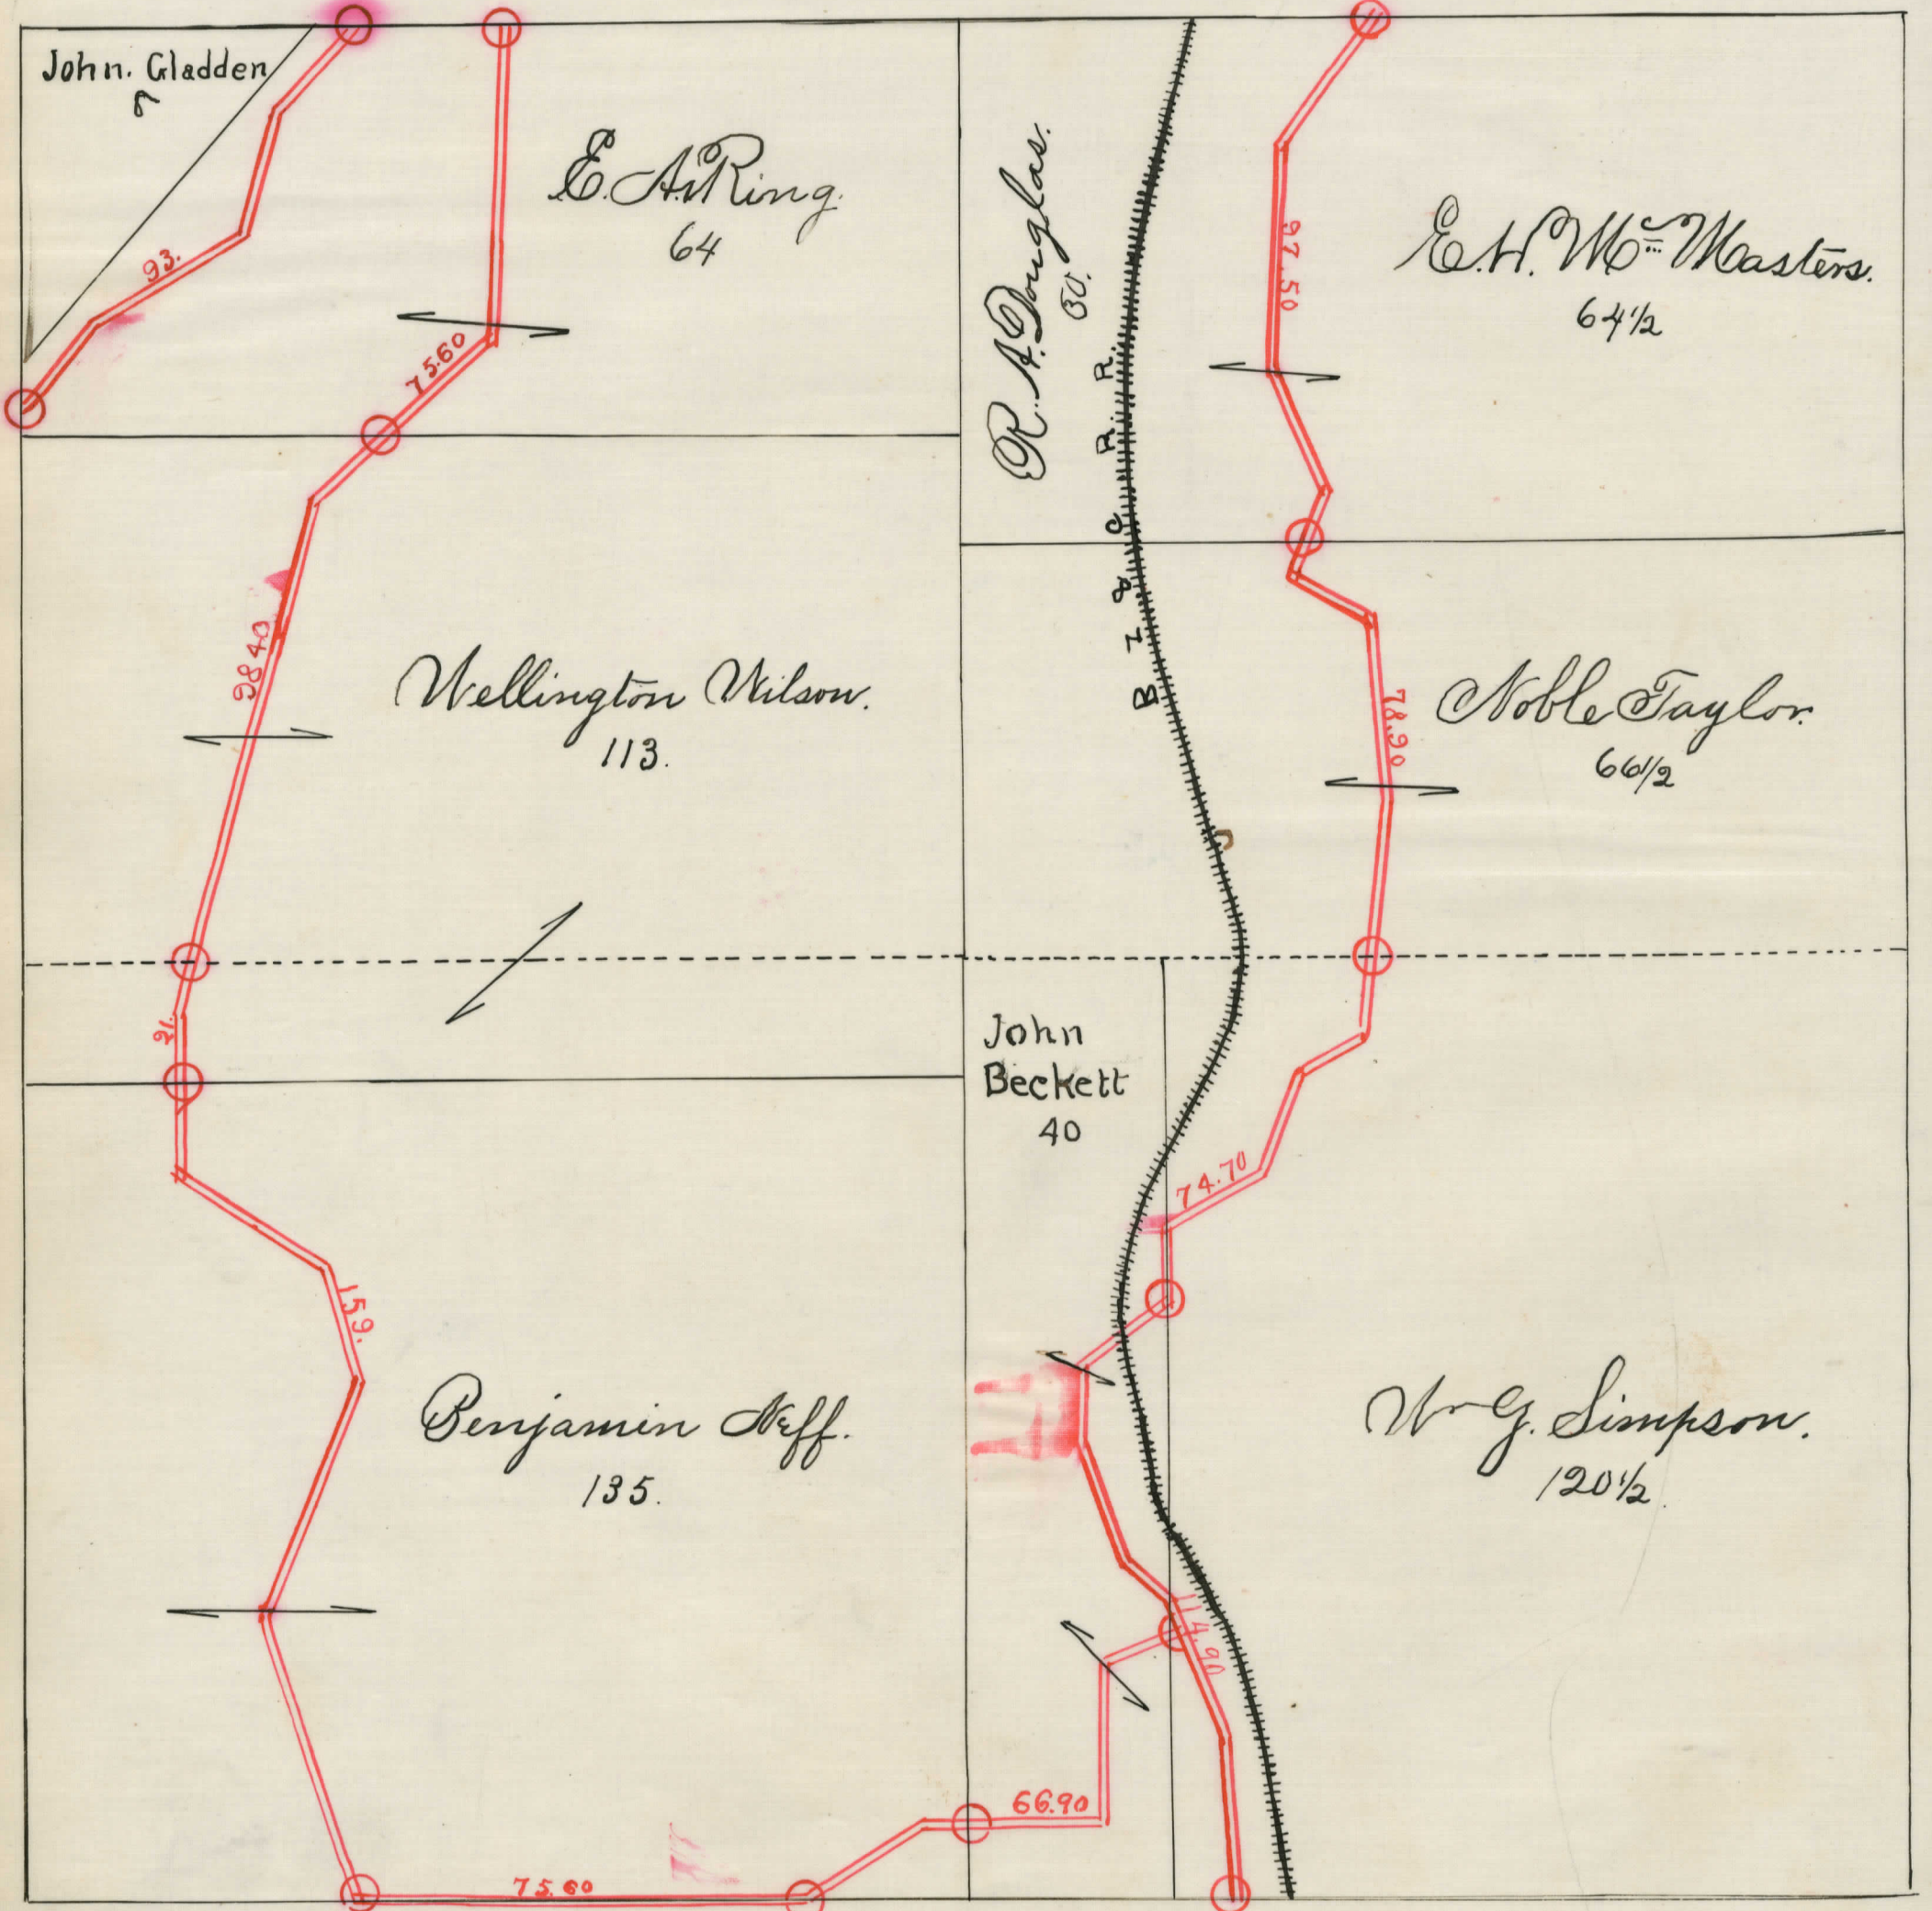 John. Gladden
7
93.
E. A. King.
64
75.60
R. A. Douglas.
30.
B Z & C R. R.
97.50
E. H. Mc Masters.
64 1/2
98 40
Wellington Wilson.
113.
78.90
Noble Taylor.
66 1/2
21.
John
Beckett
40
74.70
159.
Benjamin Neff.
135.
Wm G. Simpson.
120 1/2.
114.90
66.90
75.60